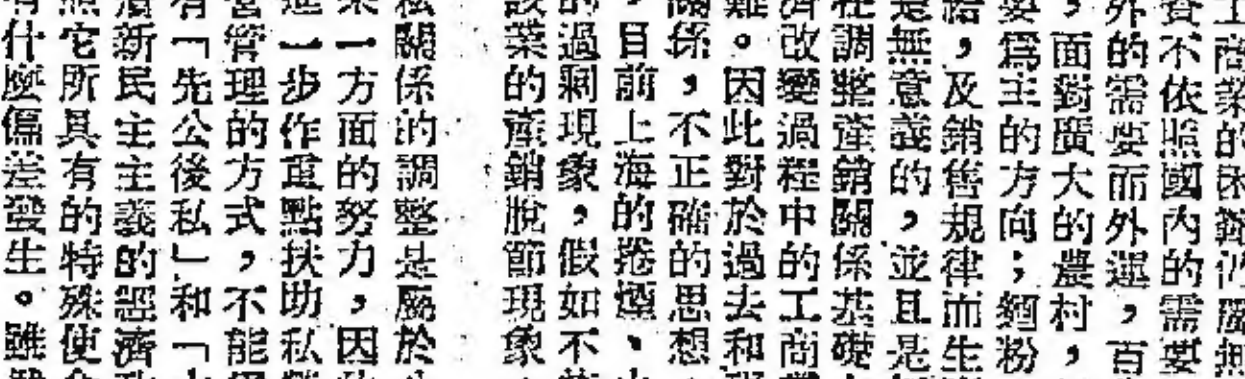 商業的困難仍屬無
資不依照國內的需要
外的需要而外運,百
,面對廣大的農村,
要爲主的方向;麵粉,
給,及銷售規律而生
是無意義的,並且是
在調整產銷關係基礎
濟改變過程中的工商業
難。因此對於過去和
關係,不正確的思想
,目前上海的捲煙、
的過剩現象,假如不
該業的產銷脫節現象
私關係的調整是屬於
一方面的努力,因
進一步作重點扶助私
管理的方式,不能
有「先公後私」和「
新民主主義的經濟
照它所具有的特殊使
有什麼偏差發生。雖